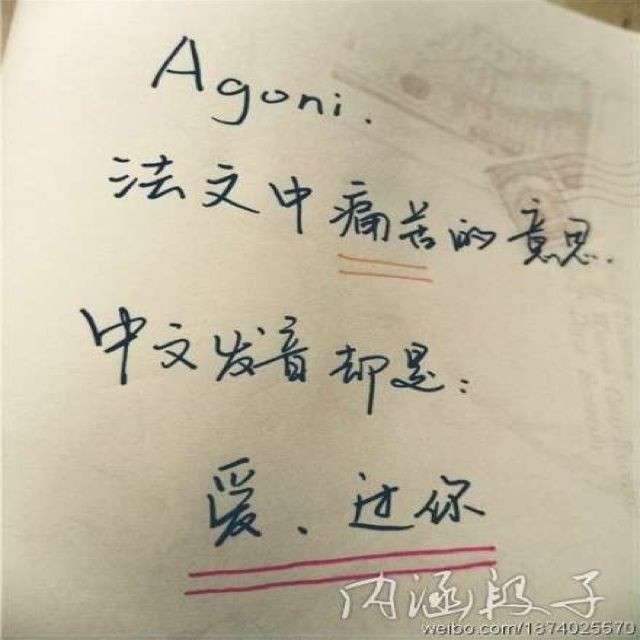 Agoni.
法文中痛苦的意思.
中文发音却是:
爱、过你
内涵段子
weibo.com/1874025570